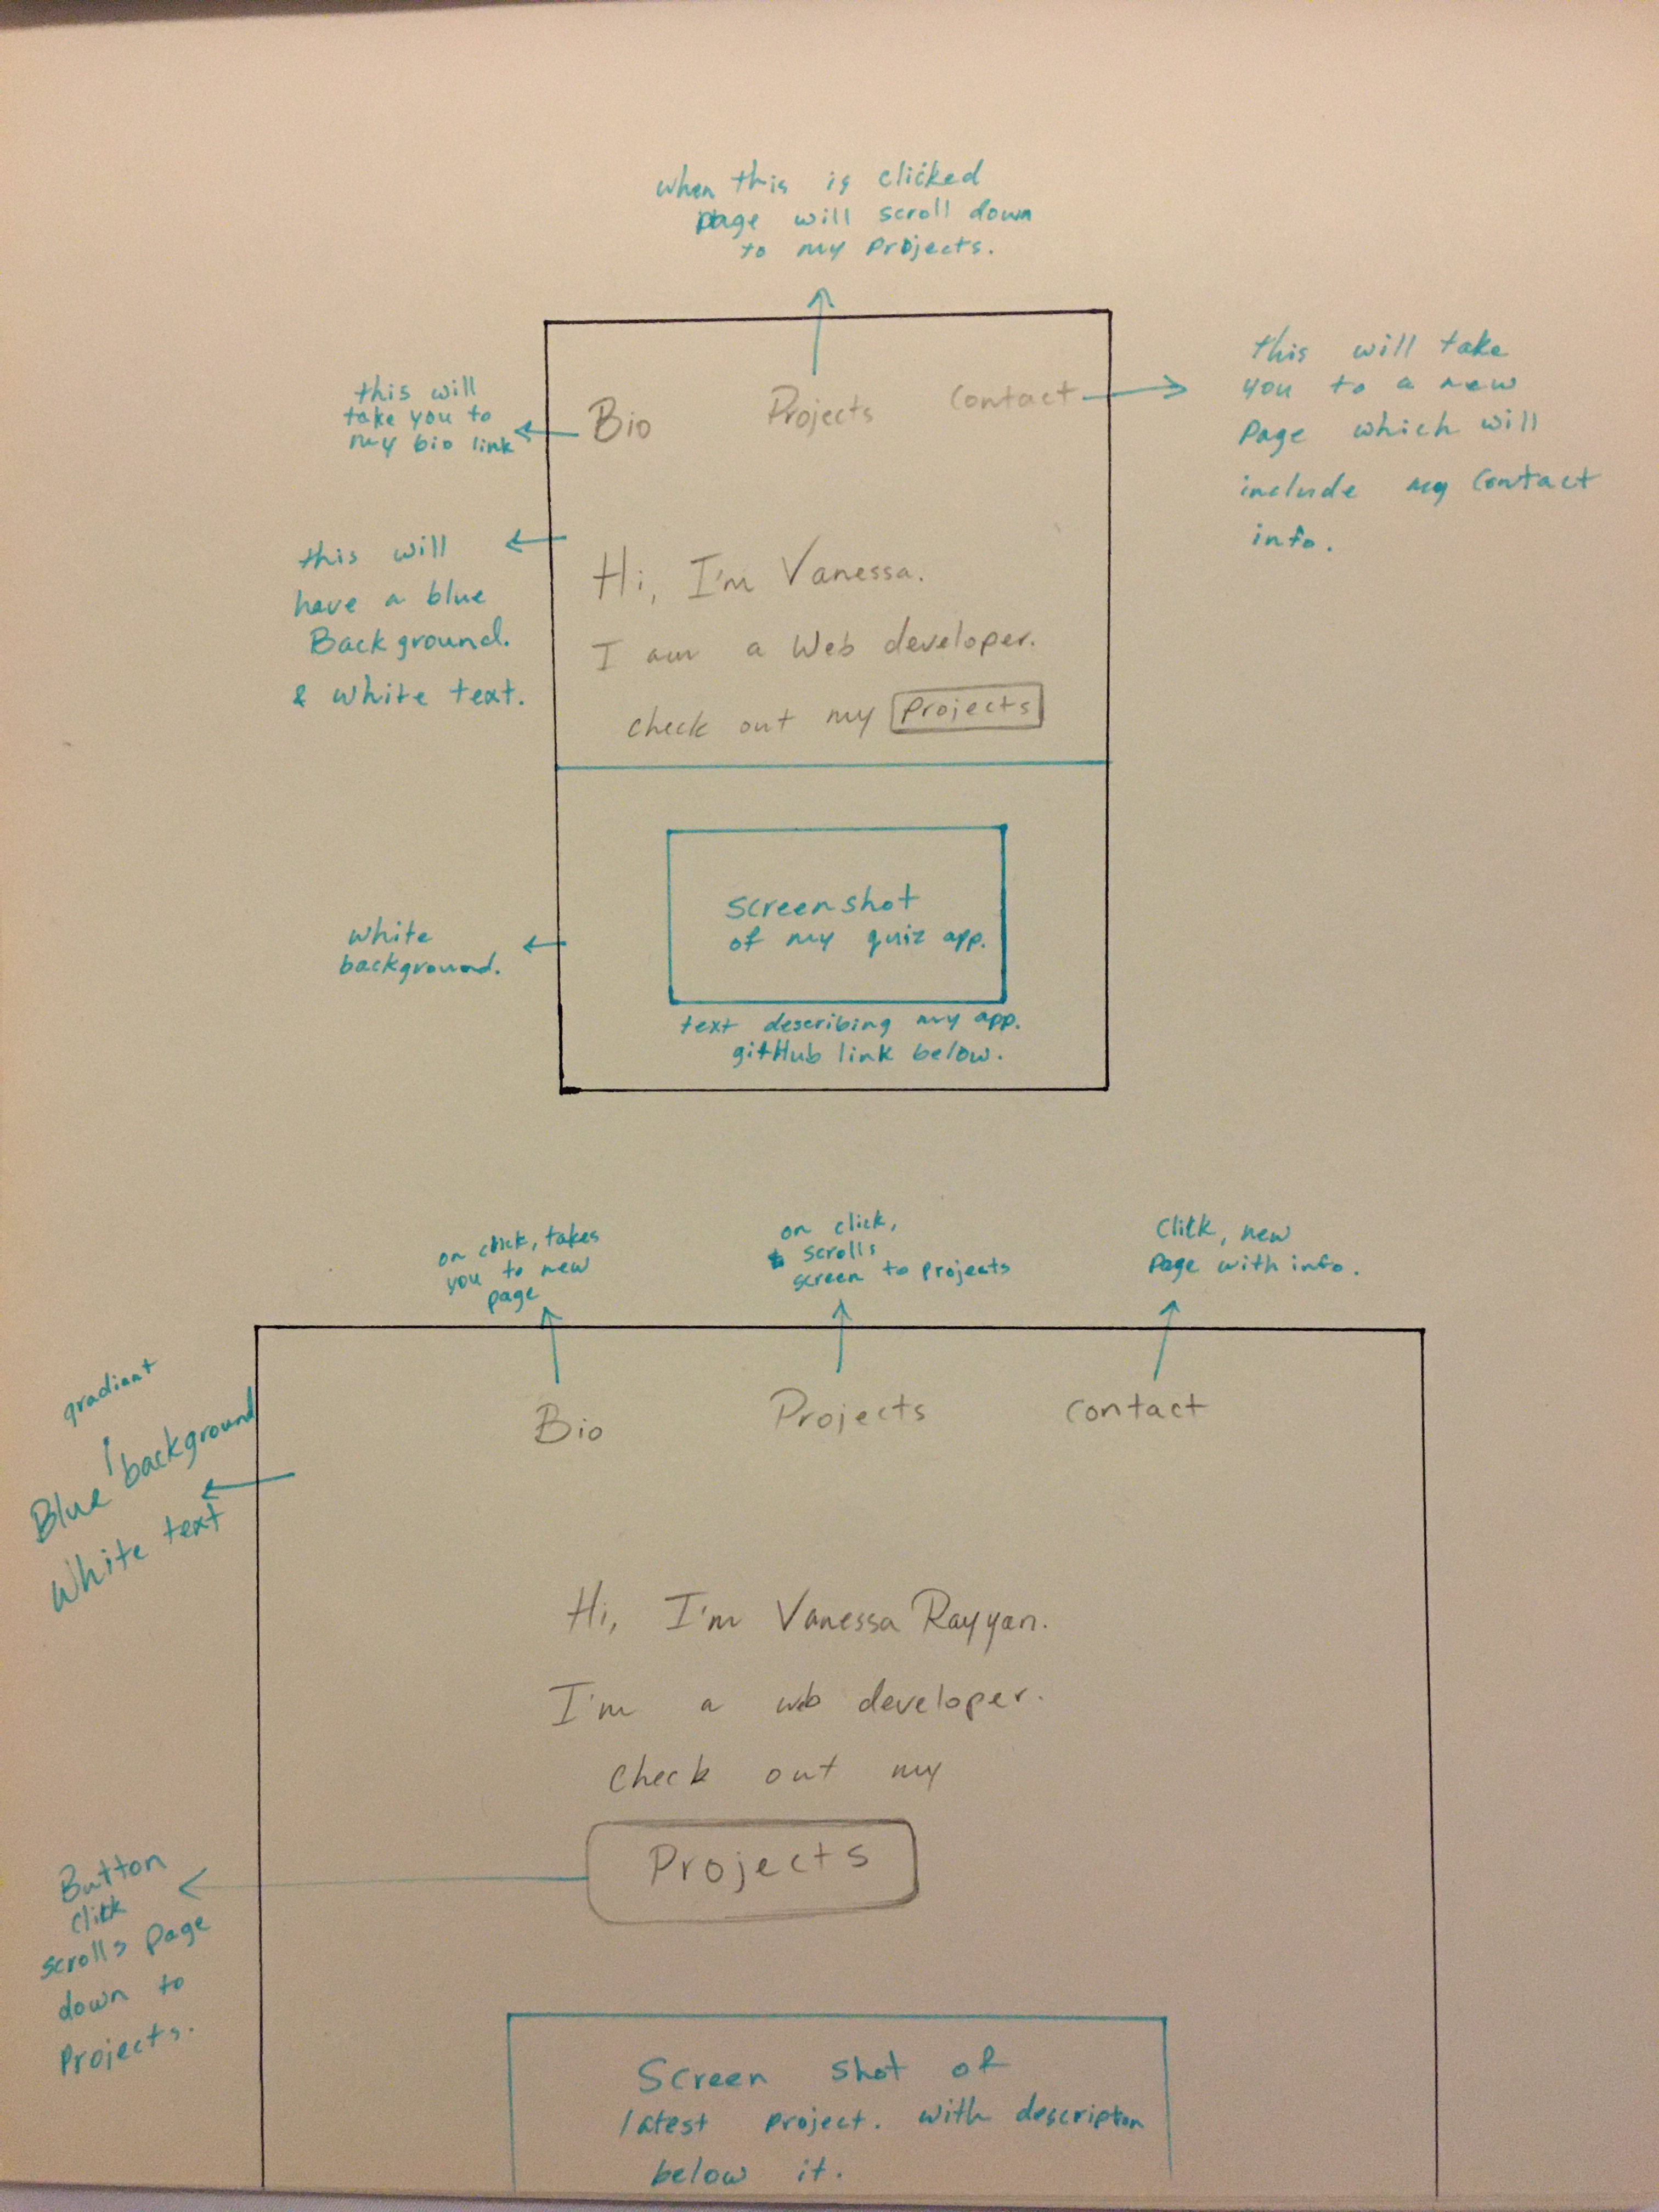 when this is clicked
page will scroll down
to my projects.
this will
take you to
my bio link
Bio
Projects
Contact
this will take
you to a new
page which will
include my contact
info.
this will
have a blue
Background.
& white text.
Hi, I'm Vanessa.
I am a Web developer.
check out my Projects
white
background.
screenshot
of my quiz app.
text describing my app.
gitHub link below.
on click, takes
you to new
page
on click,
scrolls
screen to projects
Click, new
page with info.
gradient
Blue background
White text
Bio
Projects
Contact
Hi, I'm Vanessa Rayyan.
I'm a web developer.
check out my
Projects
Button
click
scrolls page
down to
projects.
Screen shot of
latest project. with description
below it.